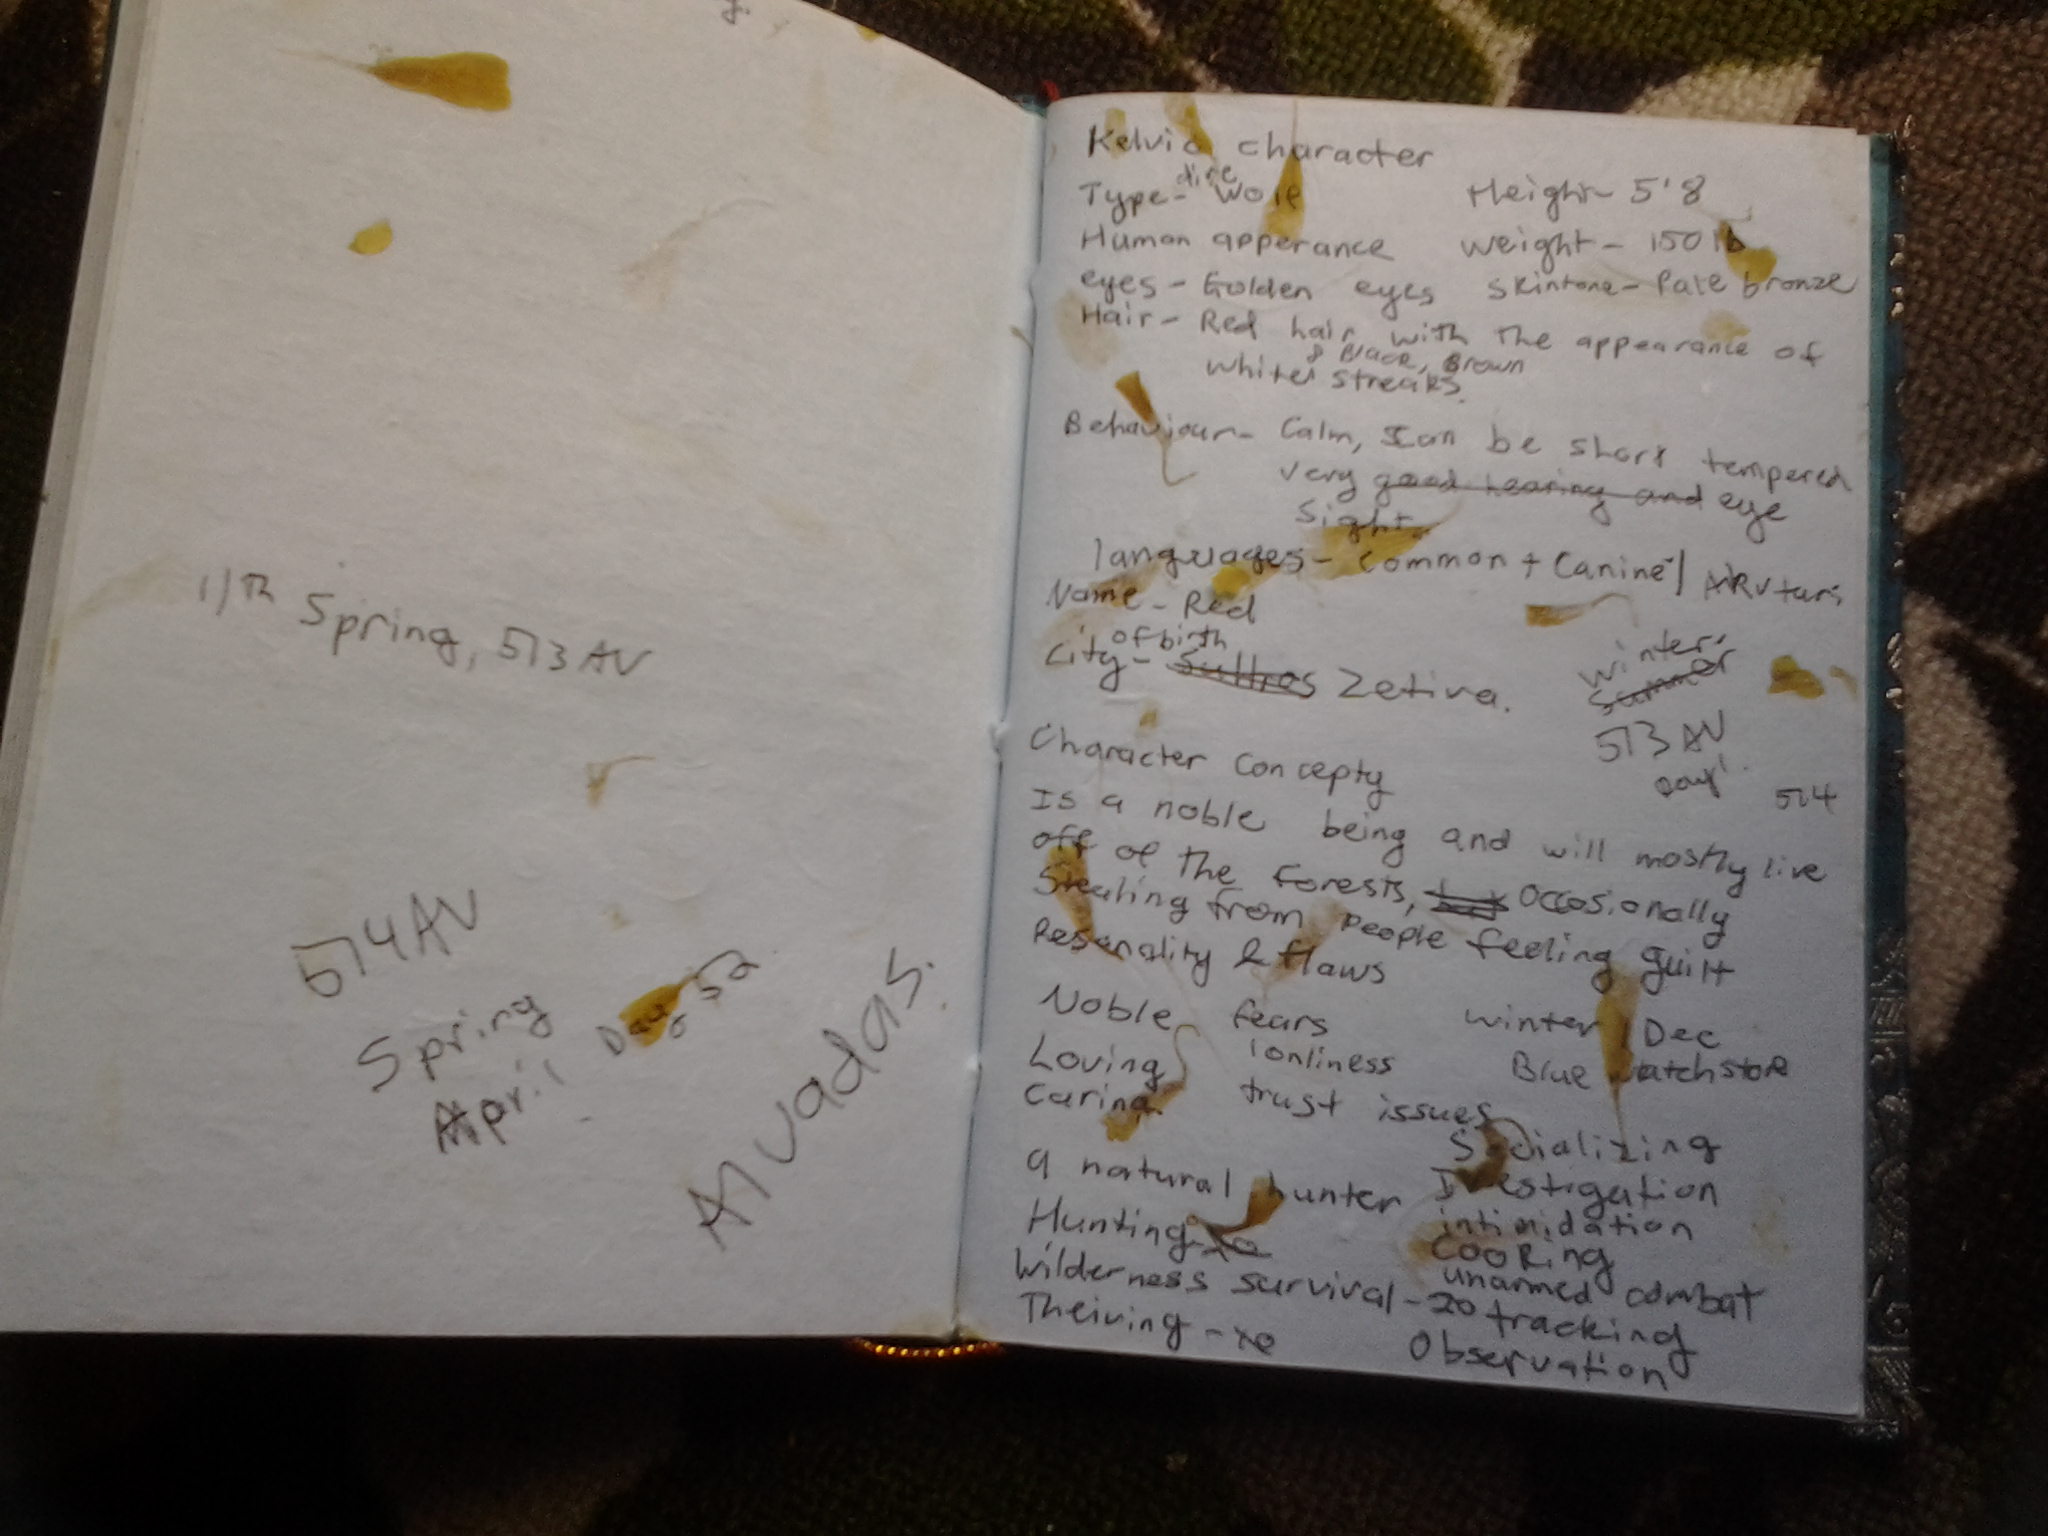 11th Spring, 513 AV
514 AV
Spring
April Day 52
Alvadas.
Kelvic character
Type - dire Wolf Height - 5'8
Human apperance weight - 150 lb
eyes - Golden eyes skintone - Pale bronze
Hair - Red hair with the appearance of
& Black, Brown
white streaks.
Behaviour - Calm, can be short tempered
very good hearing and eye
sight
languages - Common + Canine /
Name - Red
of birth
City - Sultros Zetiva.
Winter
Summer
513 AV
514
Character concepty
Is a noble being and will mostly live
off of the forests, Occosionally
Stealing from people feeling guilt
Personality & flaws
Noble fears winter Dec
Loving lonliness Blue
Caring. trust issues
Socializing
a natural hunter Investigation
Hunting intimidation
Cooking
Wilderness survival - 20 unarmed combat
Theiving - tracking
Observation